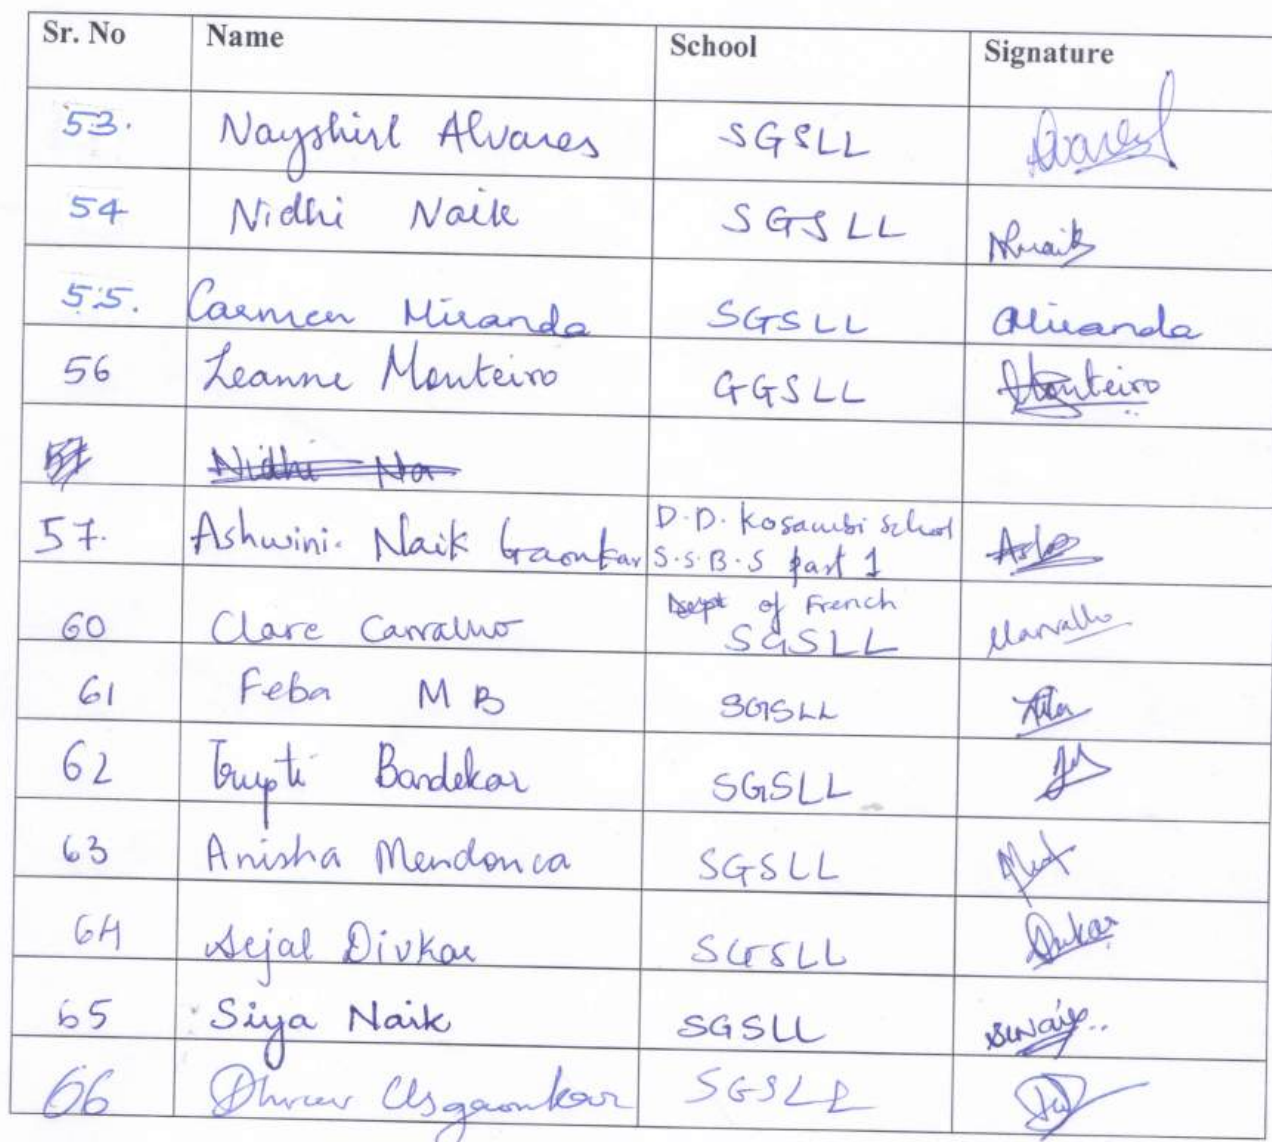 Sr. No Name School Signature
53. Nayshirl Alvares SGSLL
54 Nidhi Naik SGSLL
55. Carmen Miranda SGSLL Miranda
56 Leanne Monteiro GGSLL Monteiro
57 Nidhi Na
57. Ashwini. Naik Gaonkar D.D. Kosambi School
S.S.B.S part 1
60 Clare Carvalho Dept of French
SGSLL
61 Feba M B SGSLL
62 Trupti Bandekar SGSLL
63 Anisha Mendonca SGSLL
64 Sejal Divkar SGSLL
65 Siya Naik SGSLL
66 Dhruv Usgaonkar SGSLL